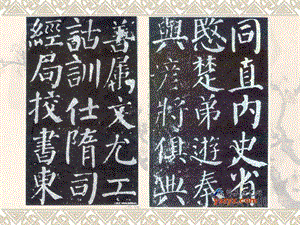 同直内史省
愍楚弟遊秦
與彦將俱典
善屬文尤工
詁訓仕隋司
經局校書東